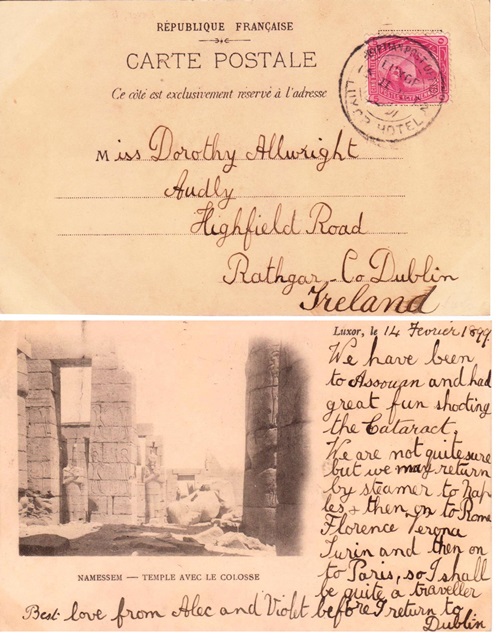 RÉPUBLIQUE FRANÇAISE
CARTE POSTALE
Ce côté est exclusivement reservé à l'adresse
LUXOR HOTEL
Miss Dorothy Allwright
Audly
Highfield Road
Rathgar - Co Dublin
Ireland
Luxor, le 14 Fevrier 1899
We have been
to Assouan and had
great fun shooting
the Cataract.
We are not quite sure
but we may return
by steamer to Nap
les + then on to Rome
Florence Verona
Turin and then on
to Paris, so I shall
be quite a traveller
before I return to
Dublin
NAMESSEM — TEMPLE AVEC LE COLOSSE
Best love from Alec and Violet